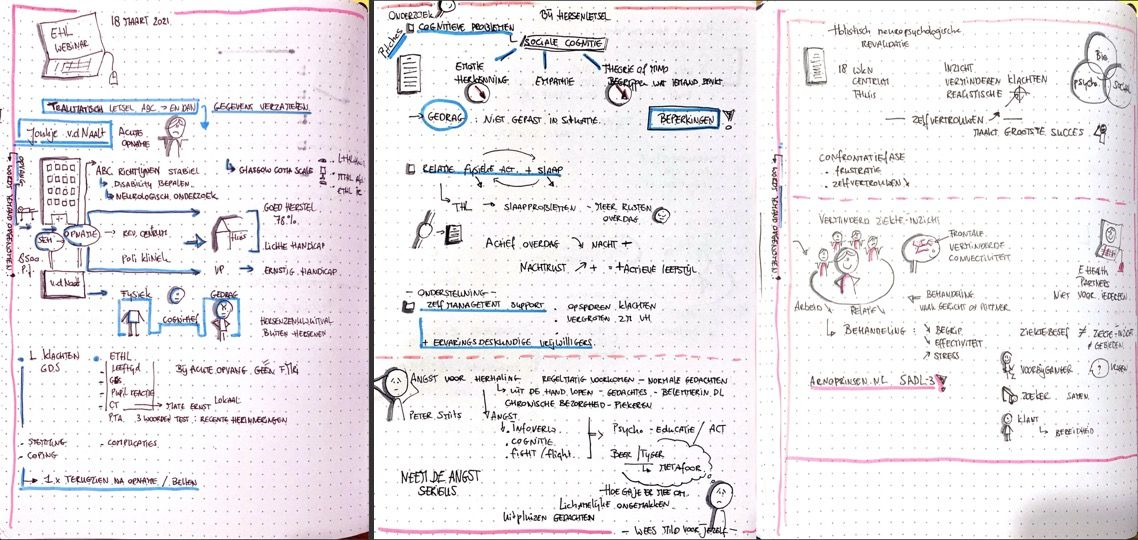 18 MAART 2021
ETHL
WEBINAR
TRAUMATISCH LETSEL ABC → EN DAN
GEGEVENS VERZAMELEN
Joukje v.d Naalt
ACUTE
OPNAME
OPVANG
ABC RICHTLIJNEN STABIEL
DISABILITY BEPALEN.
NEUROLOGISCH ONDERZOEK
GLASGOW COMA SCALE
GOED HERSTEL
78%.
SEH
OPNAME
REV. CENTRUM
THUIS
LICHTE HANDICAP
8500
P.J.
POLI KLINIEK
VP → ERNSTIG. HANDICAP.
v.d Naalt
FYSIEK
GEDRAG
COGNITIEF
BUITEN HERSENEN
KLACHTEN
GDS
ETHL
LEEFTIJD
PUPIL REACTIE
CT → MATE ERNST
LOKAAL
BIJ ACUTE OPVANG. GEEN
PTA. 3 WOORDEN TEST: RECENTE HERINNERINGEN
- STEMMING
- COPING
- COMPLICATIES.
1x TERUGZIEN NA OPNAME / BELLEN
ONDERZOEK
BIJ HERSENLETSEL
Pitches
COGNITIEVE PROBLEMEN
SOCIALE COGNITIE
EMOTIE
HERKENNING
EMPATHIE
THEORIE OF MIND
BEGRIJPEN WAT IEMAND DENKT
→ GEDRAG : NIET GEPAST IN SITUATIE.
BEPERKINGEN
RELATIE FYSIEKE ACT. + SLAAP
THL → SLAAPPROBLEMEN - MEER RUSTEN
OVERDAG
ACTIEF OVERDAG ↘ NACHT +
NACHTRUST ↗ + = + ACTIEVE LEEFSTIJL.
- ONDERSTEUNING -
ZELFMANAGEMENT SUPPORT
. OPSPOREN KLACHTEN
. VERGROTEN ZM VH
+ ERVARINGSDESKUNDIGE VRIJWILLIGERS.
ANGST VOOR HERHALING
REGELMATIG VOORKOMEN - NORMALE GEDACHTEN
UIT DE HAND LOPEN - GEDACHTES - BELEMMERIN DL
CHRONISCHE BEZORGHEID - PIEKEREN
PETER SMITS
ANGST
. INFOVERW.
. COGNITIE.
. FIGHT / flight.
PSYCHO - EDUCATIE / ACT
BEER / TIJGER
METAFOOR
NEEM DE ANGST
SERIEUS
HOE GA JE ER MEE OM.
LICHAMELIJKE ONGEMAKKEN.
UITPLUIZEN GEDACHTEN
- WEES MILD VOOR JEZELF -
Holistisch neuropsychologische
REVALIDATIE
18 WKN
CENTRUM
THUIS
INZICHT
VERMINDEREN KLACHTEN
REALISTISCHE
BIO
PSYCHO
SOCIAAL
— ZELFVERTROUWEN —
MAAKT GROOTSTE SUCCES
CONFRONTATIEFASE
- FRUSTRATIE
- ZELFVERTROUWEN ↘
VERMINDERD ZIEKTE-INZICHT
FRONTALE
VERMINDERDE
CONNECTIVITEIT
E HEALTH
PARTNERS
NIET VOOR IEDEREEN.
ARBEID
RELATIE
BEHANDELING
VAAK GERICHT OP PARTNER
↳ BEHANDELING : ↘ BEGRIP
↘ EFFECTIVITEIT.
↗ STRESS
ZIEKTEBESEF ≠ ZIEKTE-INZICHT
ARNOPRINSEN.NL SADL-3
VOORBIJGANGER
ZOEKER
SAMEN.
KLANT
↳ BEREIDHEID